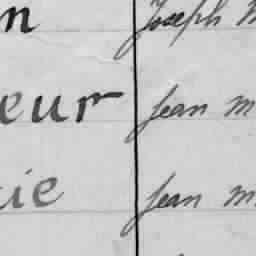 n Joseph M
eur Jean M
ie Jean M